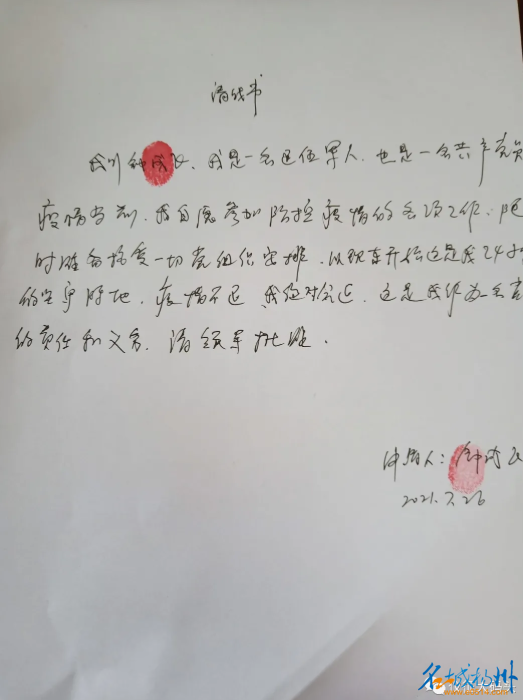 请战书
我叫钟 我是一名退伍军人，也是一名共产党员
疫情当前，我自愿参加防控疫情的各项工作，随
时准备接受一切党组织安排，以现在开始这是我24小
的坚守阵地，疫情不退 我绝对不退，这是我作为一名
的责任和义务，请领导批准．
申请人：钟
2021.7.26
名城扬州